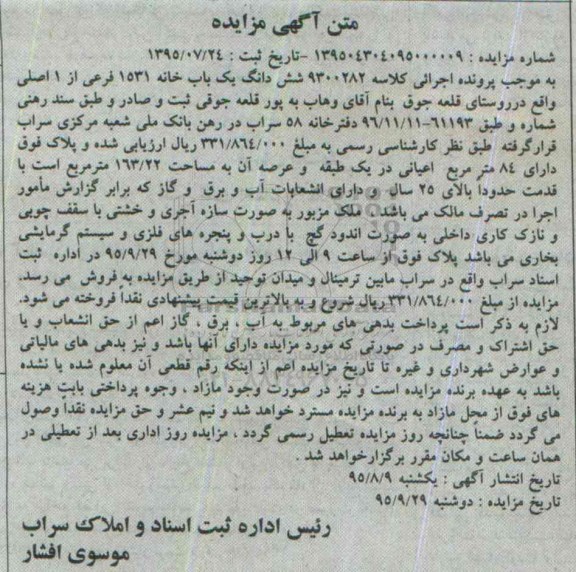 متن آگهی مزایده
شماره مزایده : ۱۳۹۵۰۴۳۰۴۰۹۵۰۰۰۰۰۹ -تاریخ ثبت : ۱۳۹۵/۰۷/۲۴
به موجب پرونده اجرائی کلاسه ۹۳۰۰۲۸۲ شش دانگ یک باب خانه ۱۵۳۱ فرعی از ۱ اصلی
واقع درروستای قلعه جوق بنام آقای وهاب به پور قلعه جوقی ثبت و صادر و طبق سند رهنی
شماره و طبق ۶۱۱۹۳-۹۶/۱۱/۱۱ دفترخانه ۵۸ سراب در رهن بانک ملی شعبه مرکزی سراب
قرارگرفته طبق نظر کارشناسی رسمی به مبلغ ۳۳۱/۸۶۴/۰۰۰ ریال ارزیابی شده و پلاک فوق
دارای ۸۴ متر مربع اعیانی در یک طبقه و عرصه آن به مساحت ۱۶۳/۲۲ مترمربع است با
قدمت حدوداً بالای ۲۵ سال و دارای انشعابات آب و برق و گاز که برابر گزارش مأمور
اجرا در تصرف مالک می باشد. ملک مزبور به صورت سازه آجری و خشتی با سقف چوبی
و نازک کاری داخلی به صورت اندود گچ با درب و پنجره های فلزی و سیستم گرمایشی
بخاری می باشد پلاک فوق از ساعت ۹ الی ۱۲ روز دوشنبه مورخ ۹۵/۹/۲۹ در اداره ثبت
اسناد سراب واقع در سراب مابین ترمینال و میدان توحید از طریق مزایده به فروش می رسد.
مزایده از مبلغ ۳۳۱/۸۶۴/۰۰۰ ریال شروع و به بالاترین قیمت پیشنهادی نقداً فروخته می شود.
لازم به ذکر است پرداخت بدهی های مربوط به آب ، برق ، گاز اعم از حق انشعاب و یا
حق اشتراک و مصرف در صورتی که مورد مزایده دارای آنها باشد و نیز بدهی های مالیاتی
و عوارض شهرداری و غیره تا تاریخ مزایده اعم از اینکه رقم قطعی آن معلوم شده یا نشده
باشد به عهده برنده مزایده است و نیز در صورت وجود مازاد ، وجوه پرداختی بابت هزینه
های فوق از محل مازاد به برنده مزایده مسترد خواهد شد و نیم عشر و حق مزایده نقداً وصول
می گردد ضمناً چنانچه روز مزایده تعطیل رسمی گردد ، مزایده روز اداری بعد از تعطیلی در
همان ساعت و مکان مقرر برگزارخواهد شد .
تاریخ انتشار آگهی : یکشنبه ۹۵/۸/۹
تاریخ مزایده : دوشنبه ۹۵/۹/۲۹
رئیس اداره ثبت اسناد و املاک سراب
موسوی افشار